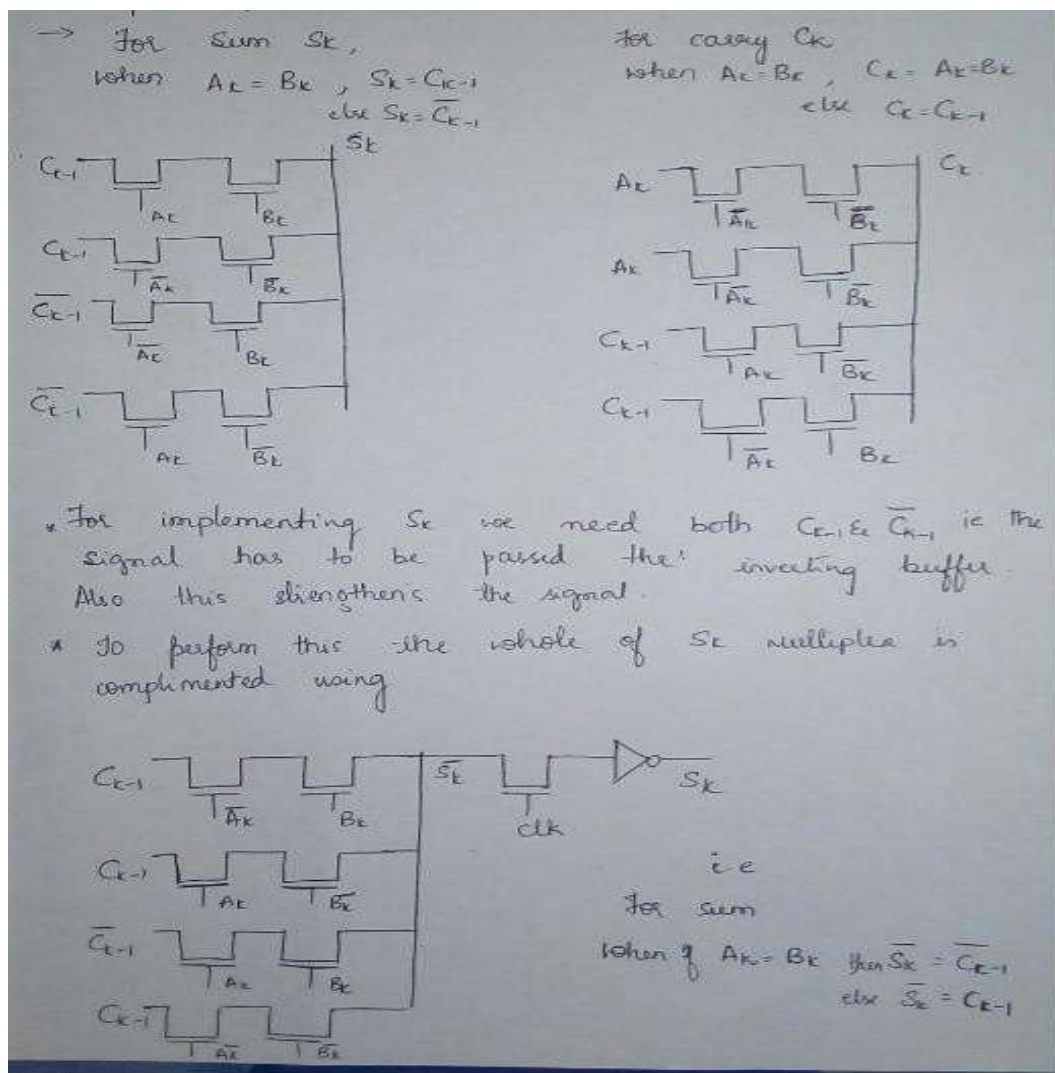 → For Sum Sk,
when Ak = Bk , Sk = Ck-1
else Sk = C̅k-1
For carry Ck
when Ak = Bk , Ck = Ak=Bk
else Ck = Ck-1
Sk
Ck-1
Ak Bk
Ck-1
A̅k B̅k
C̅k-1
A̅k Bk
C̅k-1
Ak B̅k
Ck
Ak
A̅k B̅k
Ak
A̅k B̅k
Ck-1
Ak B̅k
Ck-1
A̅k Bk
* For implementing Sk we need both Ck-1 & C̅k-1 ie the
signal has to be passed the inverting buffer.
Also this strengthens the signal.
* To perform this the whole of Sk multiplex is
complimented using
Ck-1 S̅k Sk
A̅k Bk clk
Ck-1
Ak B̅k
C̅k-1
Ak Bk
Ck-1
A̅k B̅k
i e
For sum
when if Ak = Bk then S̅k = C̅k-1
else S̅k = Ck-1